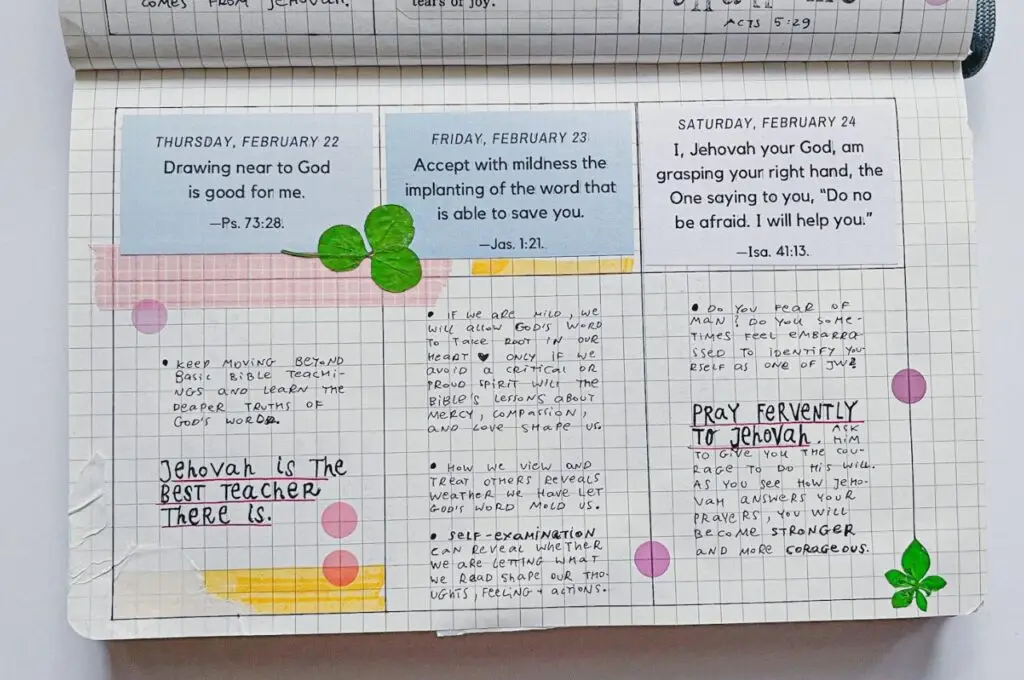 COMES FROM JEHOVAH.
tears of joy.
ACTS 5:29
THURSDAY, FEBRUARY 22
Drawing near to God
is good for me.
—Ps. 73:28.
• KEEP MOVING BEYOND
BASIC BIBLE TEACHI-
NGS AND LEARN THE
DEAPER TRUTHS OF
GOD'S WORD.
JEHOVAH IS THE
BEST TEACHER
THERE IS.
FRIDAY, FEBRUARY 23
Accept with mildness the
implanting of the word that
is able to save you.
—Jas. 1:21.
• IF WE ARE MILD, WE
WILL ALLOW GOD'S WORD
TO TAKE ROOT IN OUR
HEART ♥ ONLY IF WE
AVOID A CRITICAL OR
PROUD SPIRIT WILL THE
BIBLE'S LESSONS ABOUT
MERCY, COMPASSION,
AND LOVE SHAPE US.
• HOW WE VIEW AND
TREAT OTHERS REVEALS
WEATHER WE HAVE LET
GOD'S WORD MOLD US.
• SELF-EXAMINATION
CAN REVEAL WHETHER
WE ARE LETTING WHAT
WE RAAD SHAPE OUR THO-
UGHTS, FEELING + ACTIONS.
SATURDAY, FEBRUARY 24
I, Jehovah your God, am
grasping your right hand, the
One saying to you, “Do no
be afraid. I will help you.”
—Isa. 41:13.
• DO YOU FEAR OF
MAN? DO YOU SOME-
TIMES FEEL EMBARRA
SSED TO IDENTIFY YOU-
RSELF AS ONE OF JW?
PRAY FERVENTLY
TO JEHOVAH. ASK HIM
TO GIVE YOU THE COU-
RAGE TO DO HIS WILL.
AS YOU SEE HOW JEHO-
VAH ANSWERS YOUR
PRAYERS, YOU WILL
BECOME STRONGER
AND MORE CORAGEOUS.